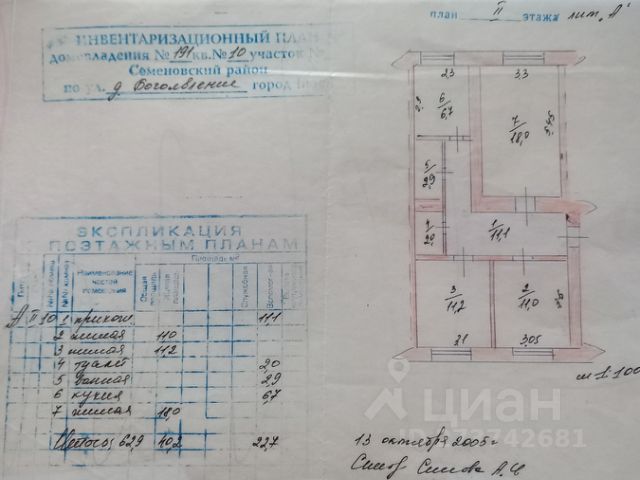 план II этажа лит. "А"
ИНВЕНТАРИЗАЦИОННЫЙ ПЛАН
домовладения № 191 кв. № 10 участок №
Семеновский район
по ул. д Боголявление город
2.3 3.3
6
6,7
7
18,0
5
2,9
4
2,0
1
11,1
3
11,2
2
11,0
2.1 3.05
м 1:100
ЭКСПЛИКАЦИЯ
ПОЭТАЖНЫМ ПЛАНАМ
Наименование частей помещения
Общая площадь
Жилая площадь
Служебная
А II 10 1 прихож. 11,1
2 жилая 11,0
3 жилая 11,2
4 туалет 2,0
5 ванная 2,9
6 кухня 6,7
7 жилая 18,0
Итого: 62,9 40,2 22,7
13 октября 2005 г
циан